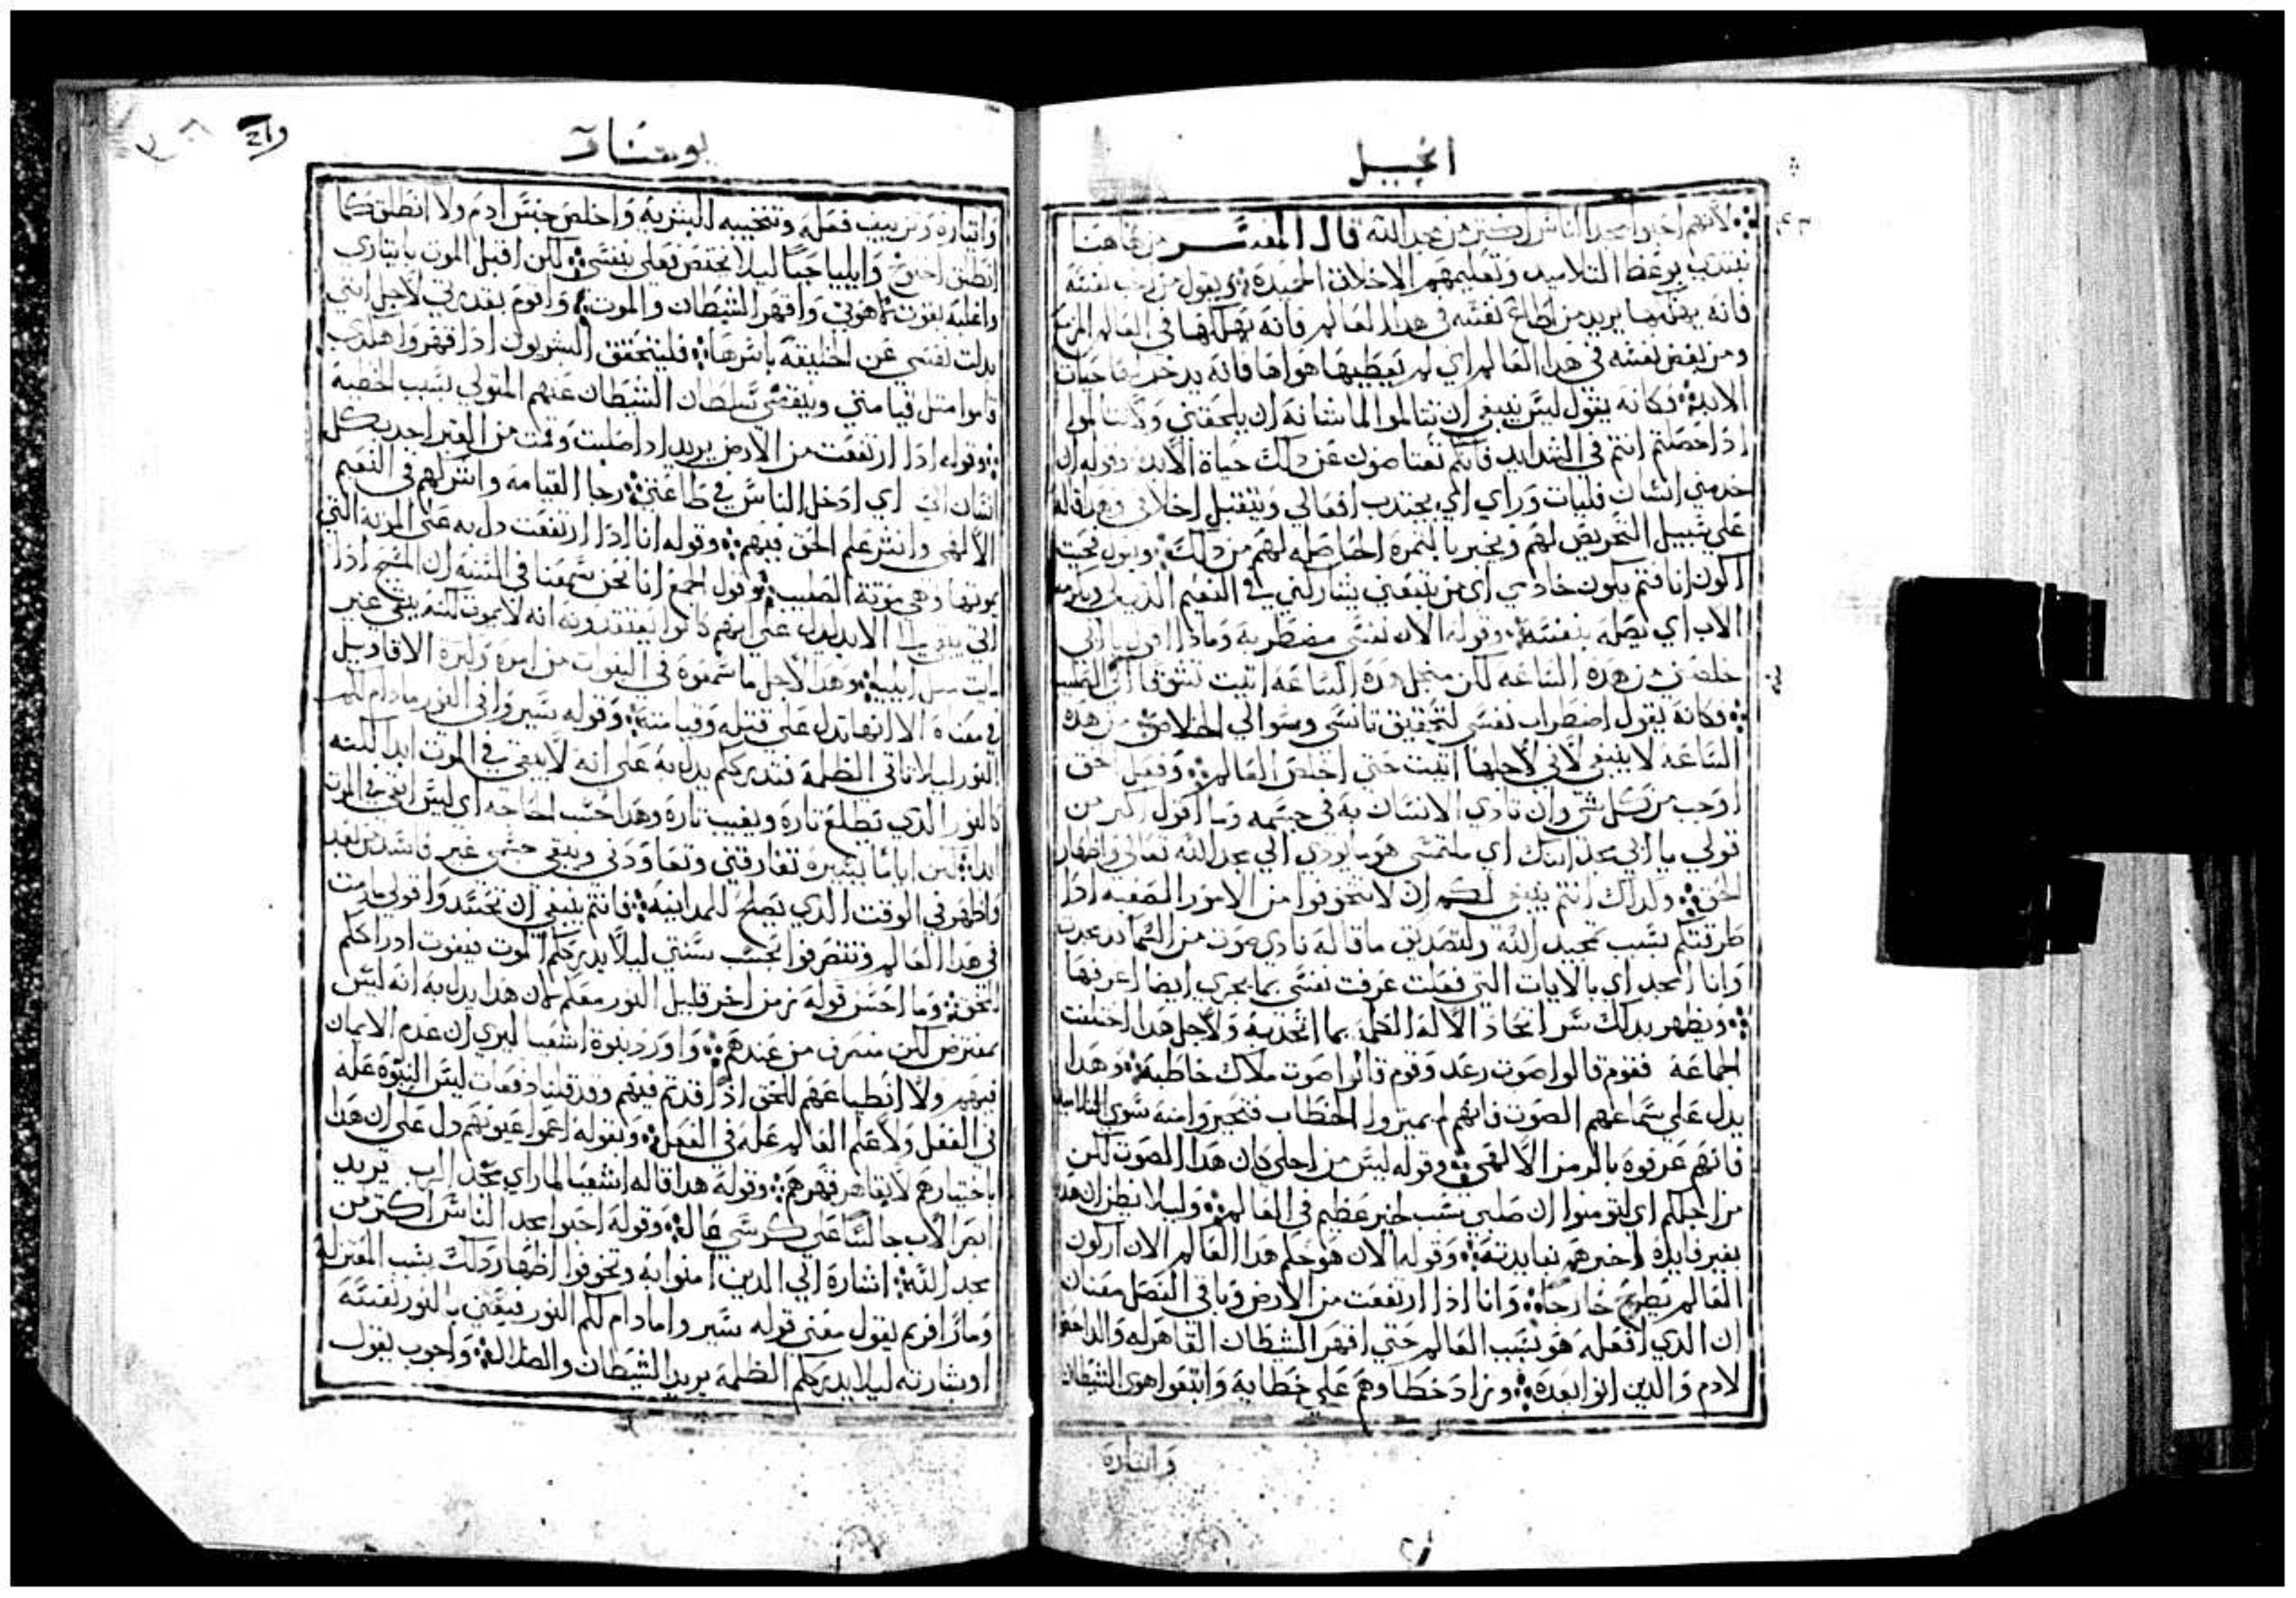 انجيل
لانهم احبوا مجد الناس اكثر من مجد الله قال المفسر من هاهنا
يبتدي بوعظ التلاميد وتعليمهم الاخلاق الحميدة ويقول من احب نفسه
فانه يهلكها يريد من اطاع نفسه في هدا العالم فانه يهلكها في العالم المزمع
ومن بغض نفسه في هدا العالم اي لم يعطيها هواها فانه يدخر لها حيات
الابد وكانه يقول ليس ينبغي ان تتالموا لما شانه ان يلحقني ولا تتالموا
ادا حصلتم انتم في الشدايد فانكم تعتاضون عن دلك حياة الابد وقوله ان
خدمني انسان فليات وراي اي يجتدب افعالي ويتقبل اخلاقي
علي سبيل التحريض لهم ويخبر بالثمرة الحاصله لهم من دلك وبقول بحيث
اكون انا فتم يكون خادمي اي من يتبعني يشاركني في النعيم
الاب اي يصله بنفسه وقوله الان نفسي مضطربه ومادا اقول يا ابي
خلصني من هده الساعه لكن من اجل هده الساعه اتيت
وكانه يقول اضطراب نفسي لتحقيق تانسي وسوالي الخلاص من هده
الساعه لا ينبغي لاني لاجلها اتيت حتي اخلص العالم وفعل الحق
اوجب من كل شي وان تادي الانسان به في جسمه وما اقول اكبر من
قولي يا ابي مجد ابنك اي ملتمسي هو ما يودي الي مجد الله تعالي واظهار
الحق ولداك انتم ينبغي لكم ان لا تتخوفوا من الامور الصعبه ادا
طرقتكم بسبب تمجيد الله ولتصديق ما قاله نادي صوت من السما قد مجدت
وانا امجد اي بالايات التي فعلت عرفت نفسي بما يجري ايضا اعرفها
ويظهر بدلك سر اتحاد الاله الكلمة بما اتخد به ولاجل هدا اختلفت
الجماعة فقوم قالوا صوت رعد وقوم قالوا صوت ملاك خاطبه وهدا
يدل علي سماعهم الصوت فانهم لم يميزوا الخطاب فتحيروا منه سوي التلاميد
فانهم عرفوه بالرمز الالهي وقوله ليس من اجلي كان هدا الصوت لكن
من اجلكم اي لتومنوا ان صلبي بسبب خبر عظيم في العالم وليلا نظن ان هدا
بغير فايدة اخبرهم بفايدته وقوله الان هو حكم هدا العالم الان اركون
العالم يطرح خارجا وانا ادا ارتفعت من الارض وباقي الفصل معناه
ان الدي افعله هو بسبب العالم حتي اقهر الشيطان القاهر له والداحض
لادم والدين اتوا بعده وزاد خطاوهم علي خطاية واتبعوا هوي الشيطان
واتياره
يوحنا
واتياره وتزييف فعله وتنجيه البشرية واخلص جنس ادم ولا انطلق كما
انطلق اخنوخ وايليا حيا ليلا يختص فعلي بنفسي لكن اقبل الموت بايتاري
واغلبه بقوت لاهوتي واقهر الشيطان والموت واقوم بقدرتي لاجل انني
بدلت نفسي عن الخليقة باسرها فليتحقق البشريون ادا قهروا هكدي
قاموا متل قيامتي وينقضي سلطان الشيطان عنهم المتولي بسبب الخطية
وقوله ادا ارتفعت من الارض يريد ادا صلبت وقمت من القبر اجدب كل
انسان الي اي ادخل الناس في طاعتي رجا القيامه واشركهم في النعيم
الالهي وانشر علم الحق فيهم وقوله انا ادا ارتفعت دل به علي الموتة التي
يموتها وهي موتة الصليب وقول الجمع انا نحن سمعنا في السنة ان المسيح ادا
اتي يبقي الي الابد يدل علي انهم كانوا يعتقدونه انه لا يموت لكنه يبقي غير
مايت متل ايليا وهدا لاجل ما سمعوه في النبوات من امره وكترة الاقاويل
في معناه الا انها تدل علي قتله وقيامته وقوله سيروا في النور مادام لكم
النور ليلا تاتي الظلمة فتدرككم يدل به علي انه لا يبقي في الموت ابدا لكنه
كالنور الدي يطلع تارة ويغيب تارة وهدا حسب الحاجه اي ليس ابقي في الموت
ابدا لكن اياما يسيرة تفارقني وتعاودني ويبقي جسمي غير فاسد من بعد
واظهر في الوقت الدي يصلح للمداينة فانتم ينبغي ان تجتهدوا في قولي ما دمت
في هدا العالم وتتصرفوا بحسب سنتي ليلا يدرككم الموت فيفوت ادراككم
الحق وما احسن قوله زمن اخر قليل النور معكم كان هدا يدل به انه ليس
بمفترض لكن منصرف من عندهم واورد نبوة اشعيا ليري ان عدم الايمان
فيهم ولا انطباعهم للحق ادا قدتم فيهم وقد قلنا دفعات ليس النبوة علة
في الفعل ولا علم العالم علة في الفعل وبقوله اعموا عيونهم دل علي ان هدا
باختيارهم لا بقاهر قهرهم وقوله هدا قاله اشعيا لما راي مجد الرب يريد
ابصر الاب جالسا علي كرسي عال وقوله احبوا مجد الناس اكتر من
مجد الله اشارة الي الدين امنوا به وتخوفوا اظهار دلك بسبب المعتزلة
ومار افريم يقول معني قوله سيروا مادام لكم النور فيعني بالنور نفسه
او بشارته ليلا يدرككم الظلمة يريد الشيطان والضلالة واجوب يقول